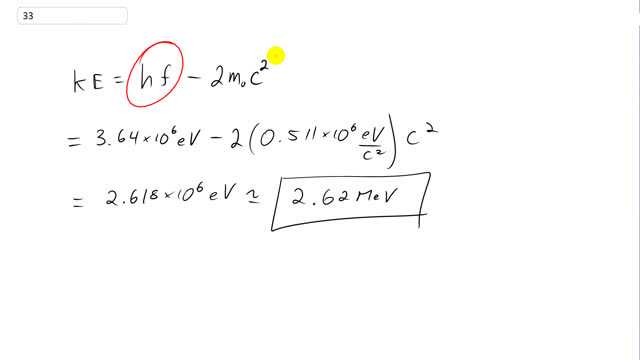 33
KE = hf - 2m₀c²
= 3.64 × 10⁶ eV - 2(0.511 × 10⁶ eV/c²) c²
= 2.618 × 10⁶ eV ≃ 2.62 MeV